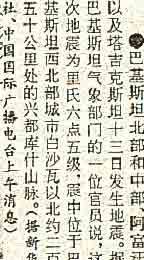 ●巴基斯坦北部和中部、阿富汗
以及塔吉克斯坦十三日发生地震。据
巴基斯坦气象部门的一位官员说，这
次地震为里氏六点五级，震中位于巴
基斯坦西北部城市白沙瓦以北约二百
五十公里处的兴都库什山脉。（据新华
社、中国国际广播电台上午消息）